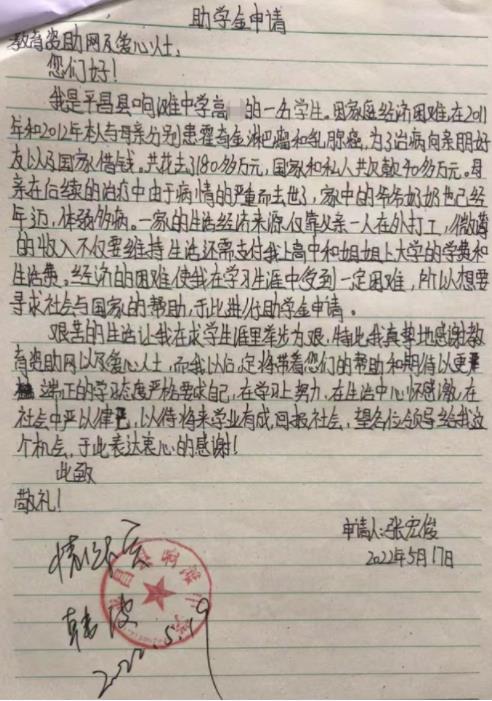 助学金申请
教育资助网及爱心人士:
您们好!
我是平昌县响滩中学高 的一名学生。因家庭经济困难,在2011
年和2012年本人与母亲分别患霍奇金淋巴瘤和乳腺癌,为了治病向亲朋好
友以及国家借钱。共花去了180多万元,国家和私人共欠款40多万元。母
亲在后续的治疗中由于病情的严重而去世了,家中的爷爷奶奶也已经
年迈,体弱多病。一家的生活经济来源仅靠父亲一人在外打工,微薄
的收入不仅要维持生活还需支付我上高中和姐姐上大学的学费和
生活费。经济的困难使我在学习生涯中受到一定困难,所以想要
寻求社会与国家的帮助,于此进行助学金申请。
艰苦的生活让我在求学生涯里举步为艰,特此我真挚地感谢教
育资助网以及爱心人士,而我以后,定将带着您们的帮助和期待以更
端正的学习态度严格要求自己,在学习上努力,在生活中心怀感激,在
社会中严以律己,以待将来学业有成,回报社会,望各位领导给我这
个机会,于此表达衷心的感谢!
此致
敬礼!
申请人:张宏俊
2022年5月17日
情况属实
韩波
2022.5.19